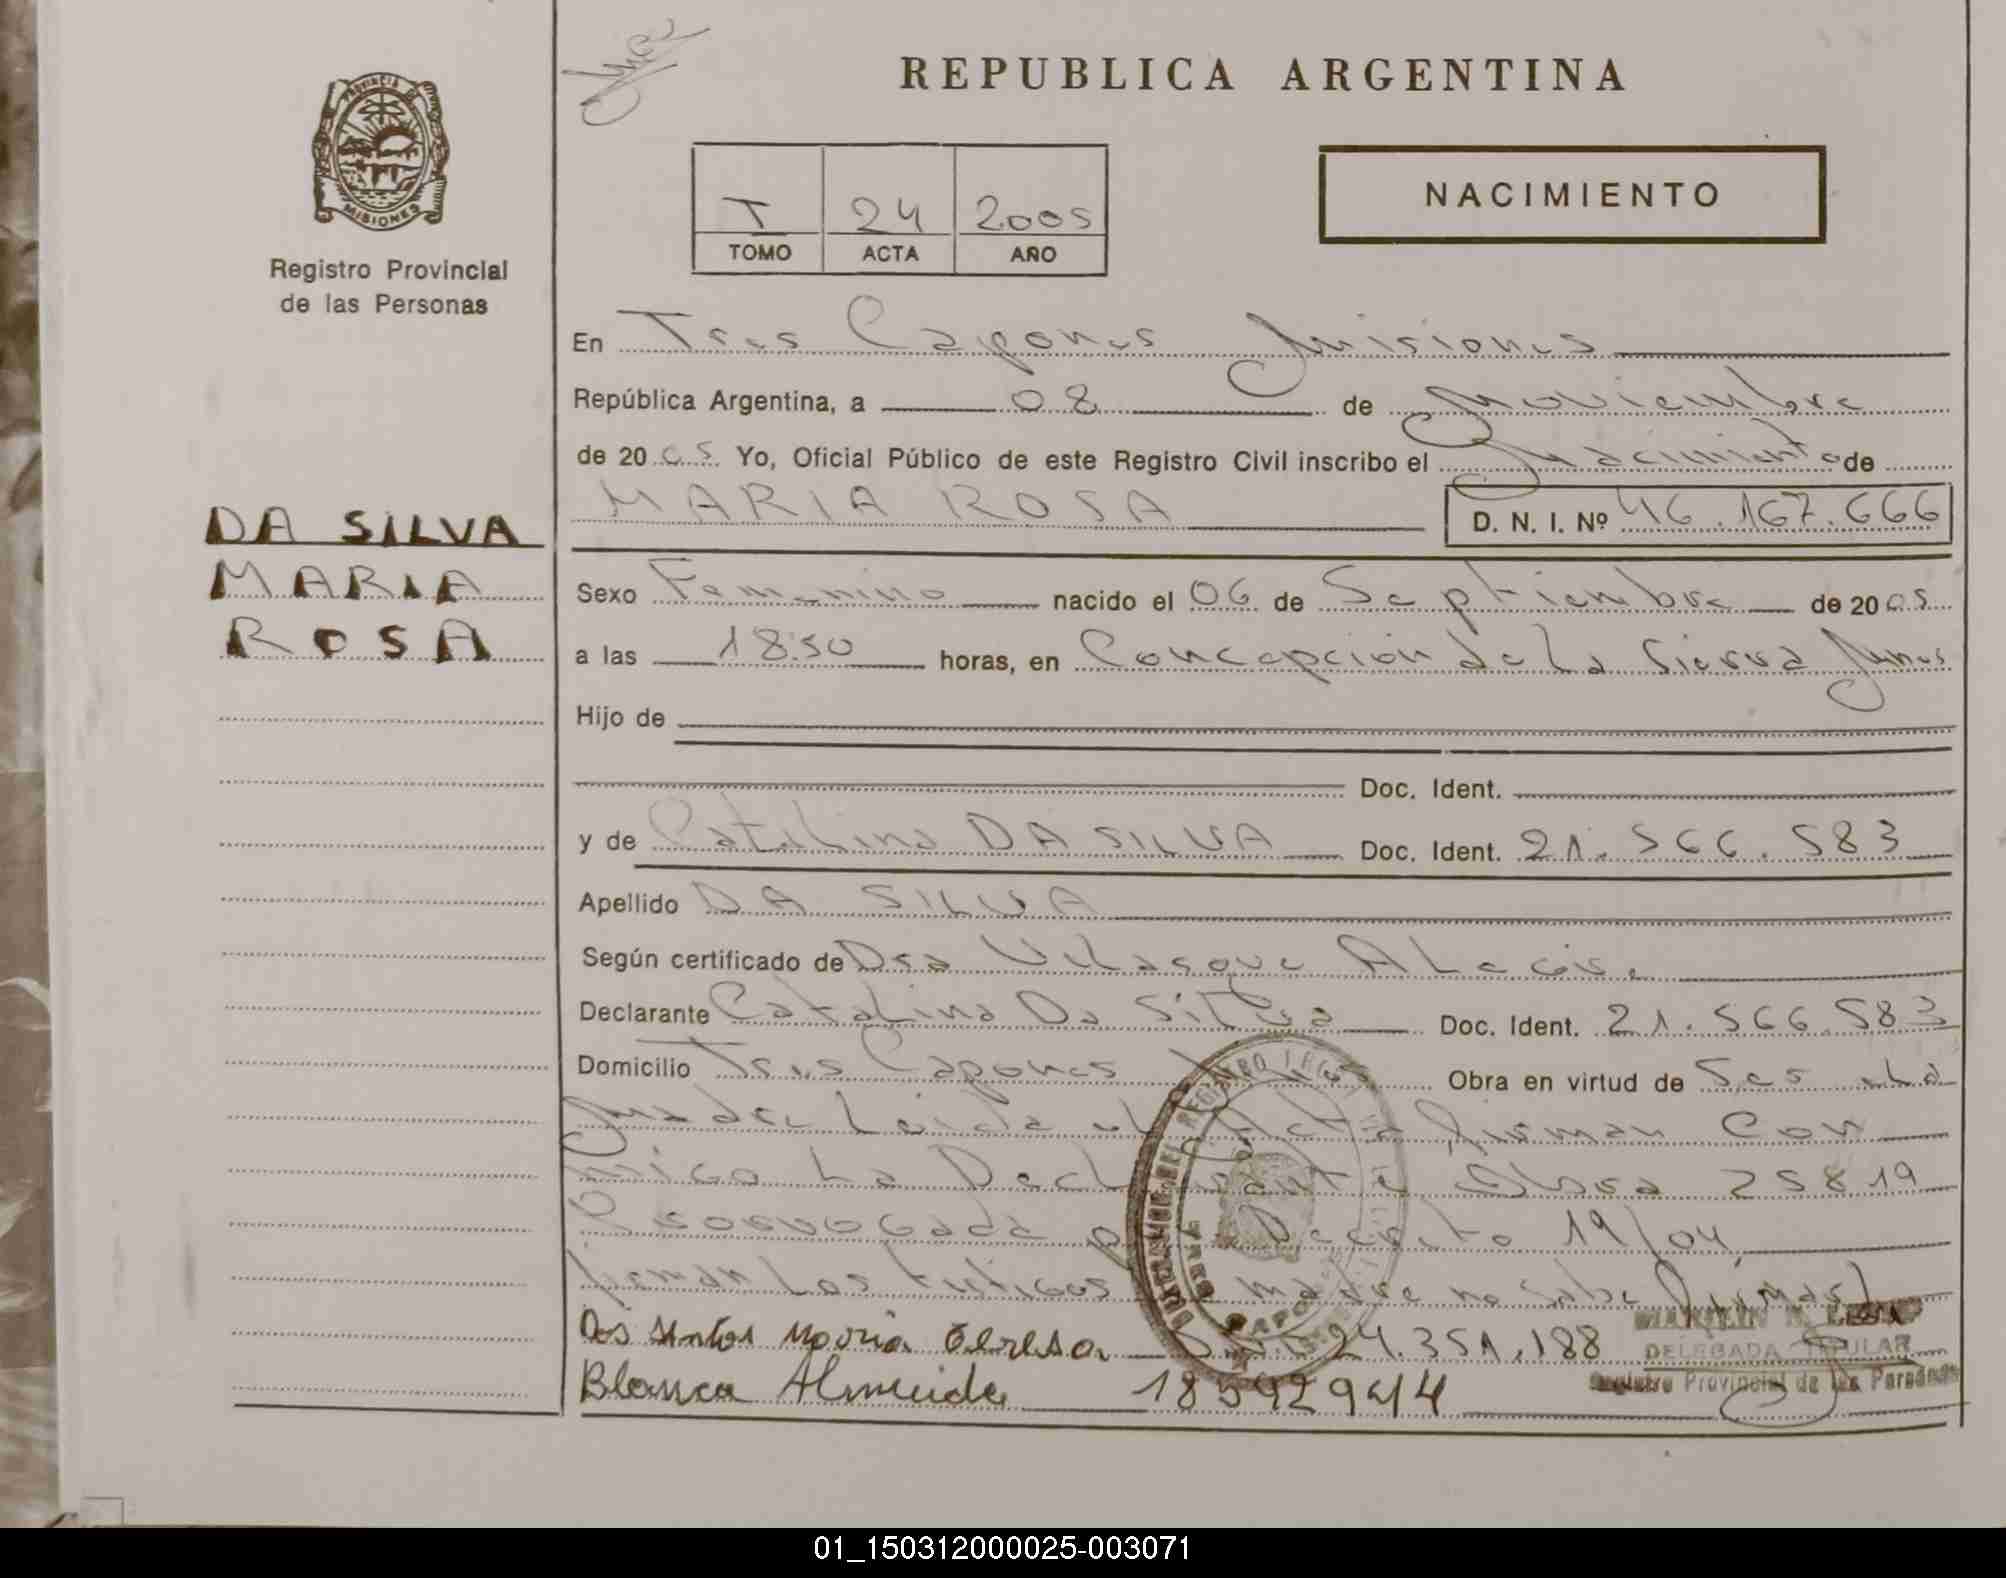 REPUBLICA ARGENTINA
PROVINCIA DE
MISIONES
Registro Provincial
de las Personas
T 24 2005
TOMO ACTA AÑO
NACIMIENTO
En Tres Capones Misiones
República Argentina, a 08 de Noviembre
de 2005 Yo, Oficial Público de este Registro Civil inscribo el Nacimiento de
MARIA ROSA D. N. I. Nº 46.167.666
DA SILVA
MARIA
ROSA
Sexo Femenino nacido el 06 de Septiembre de 2005
a las 18:50 horas, en Concepción de La Sierra Mnes
Hijo de
Doc. Ident.
y de Catalina DA SILVA Doc. Ident. 21.566.583
Apellido DA SILVA
Según certificado de Dra
Declarante Catalina Da Silva Doc. Ident. 21.566.583
Domicilio Tres Capones Obra en virtud de Ser La
madre Leida el Acta firman Con
migo La Declarante Obra 25819
Prorrogada Decreto 19/04
firman Los testigos madre no Sabe firmar
Dos Santos Maria Teresa 24.351.188
Blanca Almeida 18592944
DELEGADA TITULAR
Registro Provincial de las Personas
01_150312000025-003071